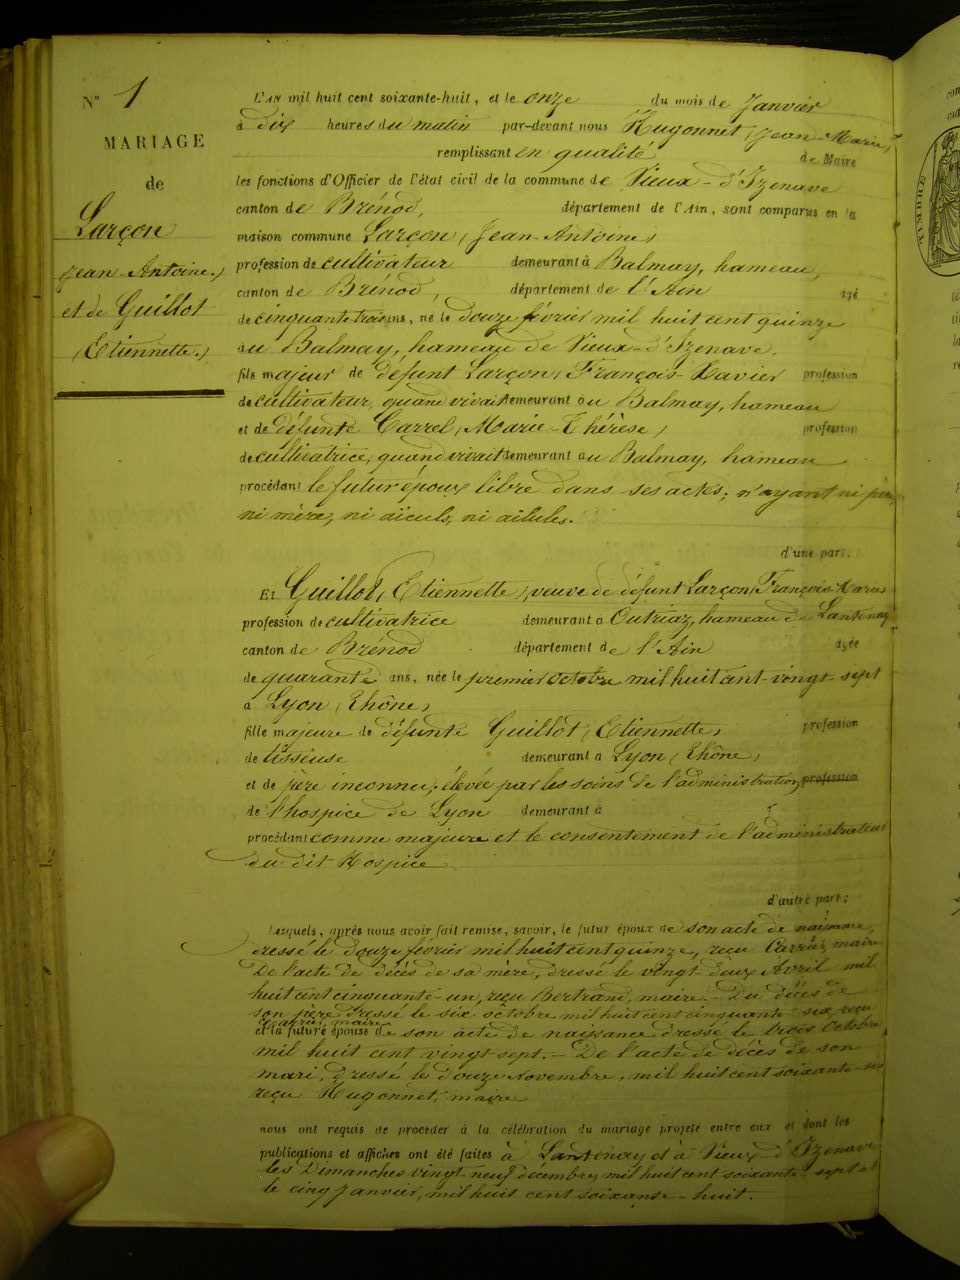 N° 1
MARIAGE
de
Larçon
(Jean-Antoine.)
et de Guillot
(Etiennette.)
L'AN mil huit cent soixante-huit, et le onze du mois de Janvier
à dix heures du matin par-devant nous Hugonnet (Jean-Marie)
remplissant en qualité de Maire
les fonctions d'Officier de l'état civil de la commune de Vieux-d'Izenave
canton de Brénod, département de l'Ain, sont comparus en la
maison commune Larçon (Jean-Antoine)
profession de cultivateur demeurant à Balmay, hameau,
canton de Brénod, département de l'Ain âgé
de cinquante trois ans, né le douze février mil huit cent quinze
au Balmay, hameau de Vieux-d'Izenave,
fils majeur de défunt Larçon (François-Xavier profession
de cultivateur, quand vivait demeurant au Balmay, hameau
et de défunte Carrel (Marie-Thérèse) profession
de cultivatrice, quand vivait demeurant au Balmay, hameau
procédant le futur époux libre dans ses actes; n'ayant ni père
ni mère, ni aïeuls, ni aïeules.
d'une part.
Et Guillot (Etiennette) veuve de défunt Larçon François-Marie
profession de cultivatrice demeurant à Outriaz, hameau de Lantenay
canton de Brénod département de l'Ain âgée
de quarante ans, née le premier octobre mil huit cent vingt-sept
à Lyon (Rhône)
fille majeure de défunte Guillot (Etiennette) profession
de tisseuse demeurant à Lyon (Rhône)
et de père inconnu; élevée par les soins de l'administration profession
de l'hospice de Lyon demeurant à
procédant comme majeure et le consentement de l'administrateur
du dit Hospice
d'autre part;
Lesquels, après nous avoir fait remise, savoir, le futur époux de son acte de naissance,
dressé le douze février mil huit cent quinze, reçu maire
De l'acte de décès de sa mère, dressé le vingt deux Avril mil
huit cent cinquante-un, reçu Bertrand, maire.- Du décès de
son père dressé le six octobre mil huit cent cinquante-six, reçu
maire
et la future épouse de son acte de naissance dressé le trois Octobre
mil huit cent vingt-sept.- De l'acte de décès de son
mari, dressé le douze Novembre, mil huit cent soixante-six
reçu Hugonnet, maire
nous ont requis de procéder à la célébration du mariage projeté entre eux et dont les
publications et affiches ont été faites à Lantenay et à Vieux-d'Izenave
les Dimanches vingt-neuf décembre, mil huit cent soixante-sept et
le cinq Janvier, mil huit cent soixante-huit.
TIMBRE